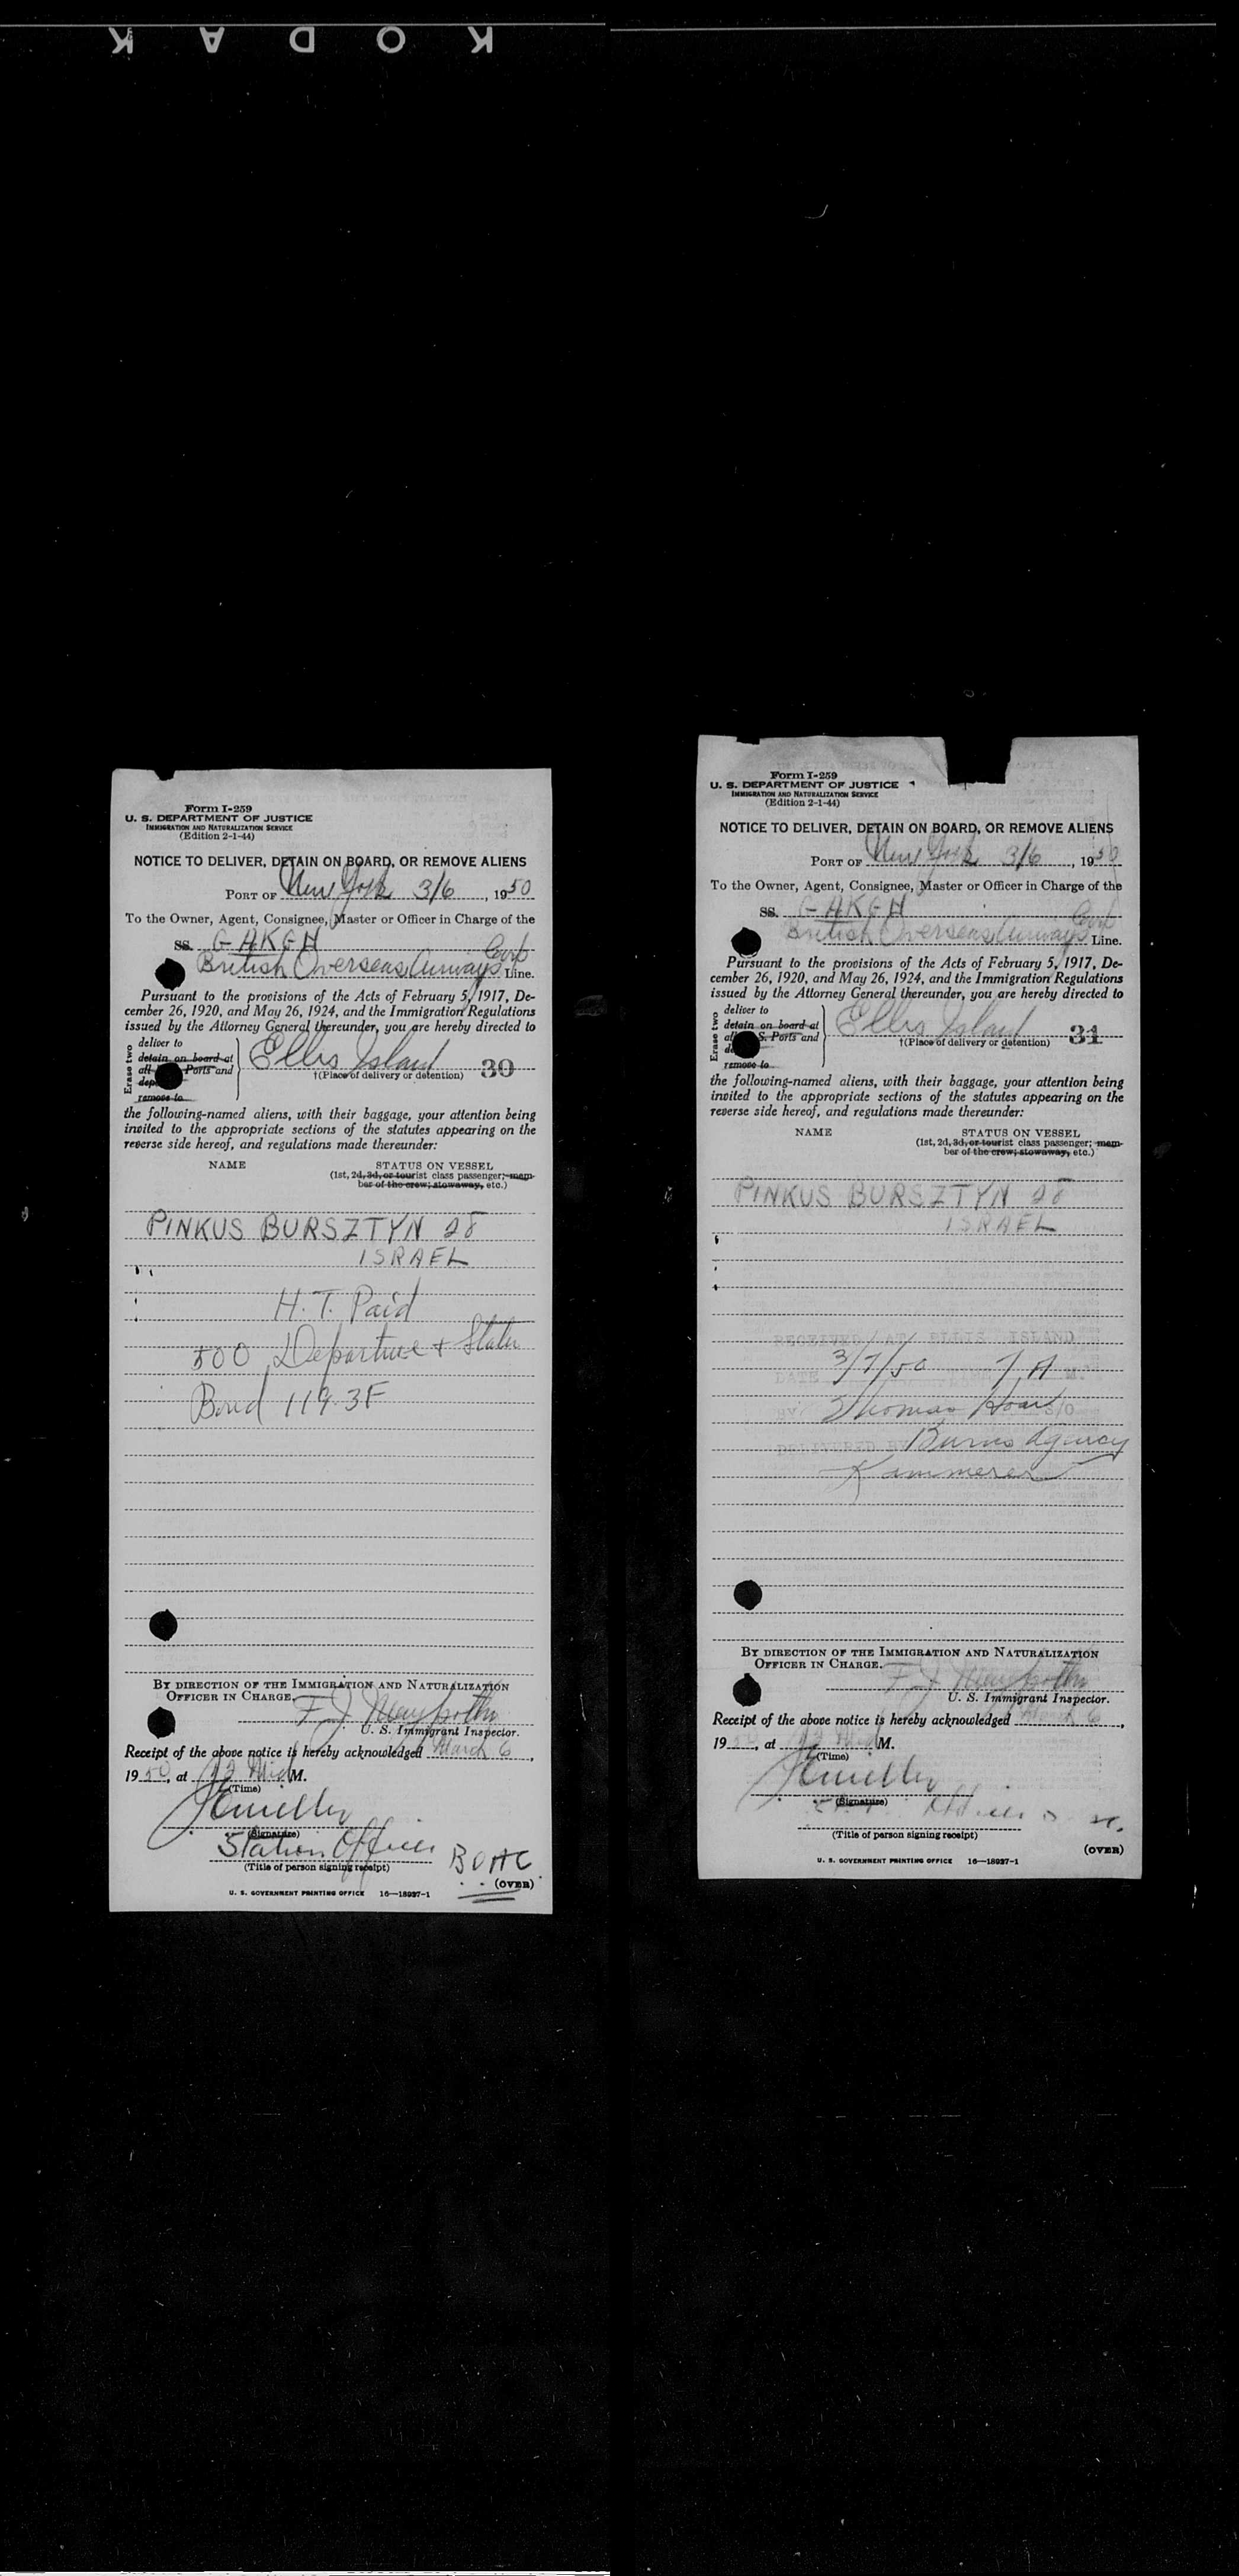 KODAK
Form I-259
U. S. DEPARTMENT OF JUSTICE
IMMIGRATION AND NATURALIZATION SERVICE
(Edition 2-1-44)
NOTICE TO DELIVER, DETAIN ON BOARD, OR REMOVE ALIENS
PORT OF New York 3/6, 1950
To the Owner, Agent, Consignee, Master or Officer in Charge of the
SS. G-AKGH
British Overseas Airways Corp Line.
Pursuant to the provisions of the Acts of February 5, 1917, De-
cember 26, 1920, and May 26, 1924, and the Immigration Regulations
issued by the Attorney General thereunder, you are hereby directed to
Erase two
deliver to
detain on board at
all Ports and
dep
remove to
Ellis Island
†(Place of delivery or detention) 30
the following-named aliens, with their baggage, your attention being
invited to the appropriate sections of the statutes appearing on the
reverse side hereof, and regulations made thereunder:
NAME STATUS ON VESSEL
(1st, 2d, 3d, or tourist class passenger; mem-
ber of the crew; stowaway, etc.)
PINKUS BURSZTYN 28
ISRAEL
H. T. Paid
500 Departure + Status
Bond 1193F
BY DIRECTION OF THE IMMIGRATION AND NATURALIZATION
OFFICER IN CHARGE.
F. J.
U. S. Immigrant Inspector.
Receipt of the above notice is hereby acknowledged March 6,
1950, at 12 Mid M.
(Time)
(Signature)
Station Officer BOAC
(Title of person signing receipt)
(OVER)
U. S. GOVERNMENT PRINTING OFFICE 16—18937-1
Form I-259
U. S. DEPARTMENT OF JUSTICE
IMMIGRATION AND NATURALIZATION SERVICE
(Edition 2-1-44)
NOTICE TO DELIVER, DETAIN ON BOARD, OR REMOVE ALIENS
PORT OF New York 3/6, 1950
To the Owner, Agent, Consignee, Master or Officer in Charge of the
SS. G-AKGH
British Overseas Airways Corp Line.
Pursuant to the provisions of the Acts of February 5, 1917, De-
cember 26, 1920, and May 26, 1924, and the Immigration Regulations
issued by the Attorney General thereunder, you are hereby directed to
Erase two
deliver to
detain on board at
al S. Ports and
de
remove to
Ellis Island
†(Place of delivery or detention) 31
the following-named aliens, with their baggage, your attention being
invited to the appropriate sections of the statutes appearing on the
reverse side hereof, and regulations made thereunder:
NAME STATUS ON VESSEL
(1st, 2d, 3d, or tourist class passenger; mem-
ber of the crew; stowaway, etc.)
PINKUS BURSZTYN 28
ISRAEL
RECEIVED AT ELLIS ISLAND
DATE 3/7/50 7 A M.
BY Thomas S/O
DELIVERED BY Burns Agency
Kammerer
BY DIRECTION OF THE IMMIGRATION AND NATURALIZATION
OFFICER IN CHARGE.
F. J.
U. S. Immigrant Inspector.
Receipt of the above notice is hereby acknowledged March 6,
1950, at 12 Mid M.
(Time)
(Signature)
(Title of person signing receipt)
(OVER)
U. S. GOVERNMENT PRINTING OFFICE 16—18937-1